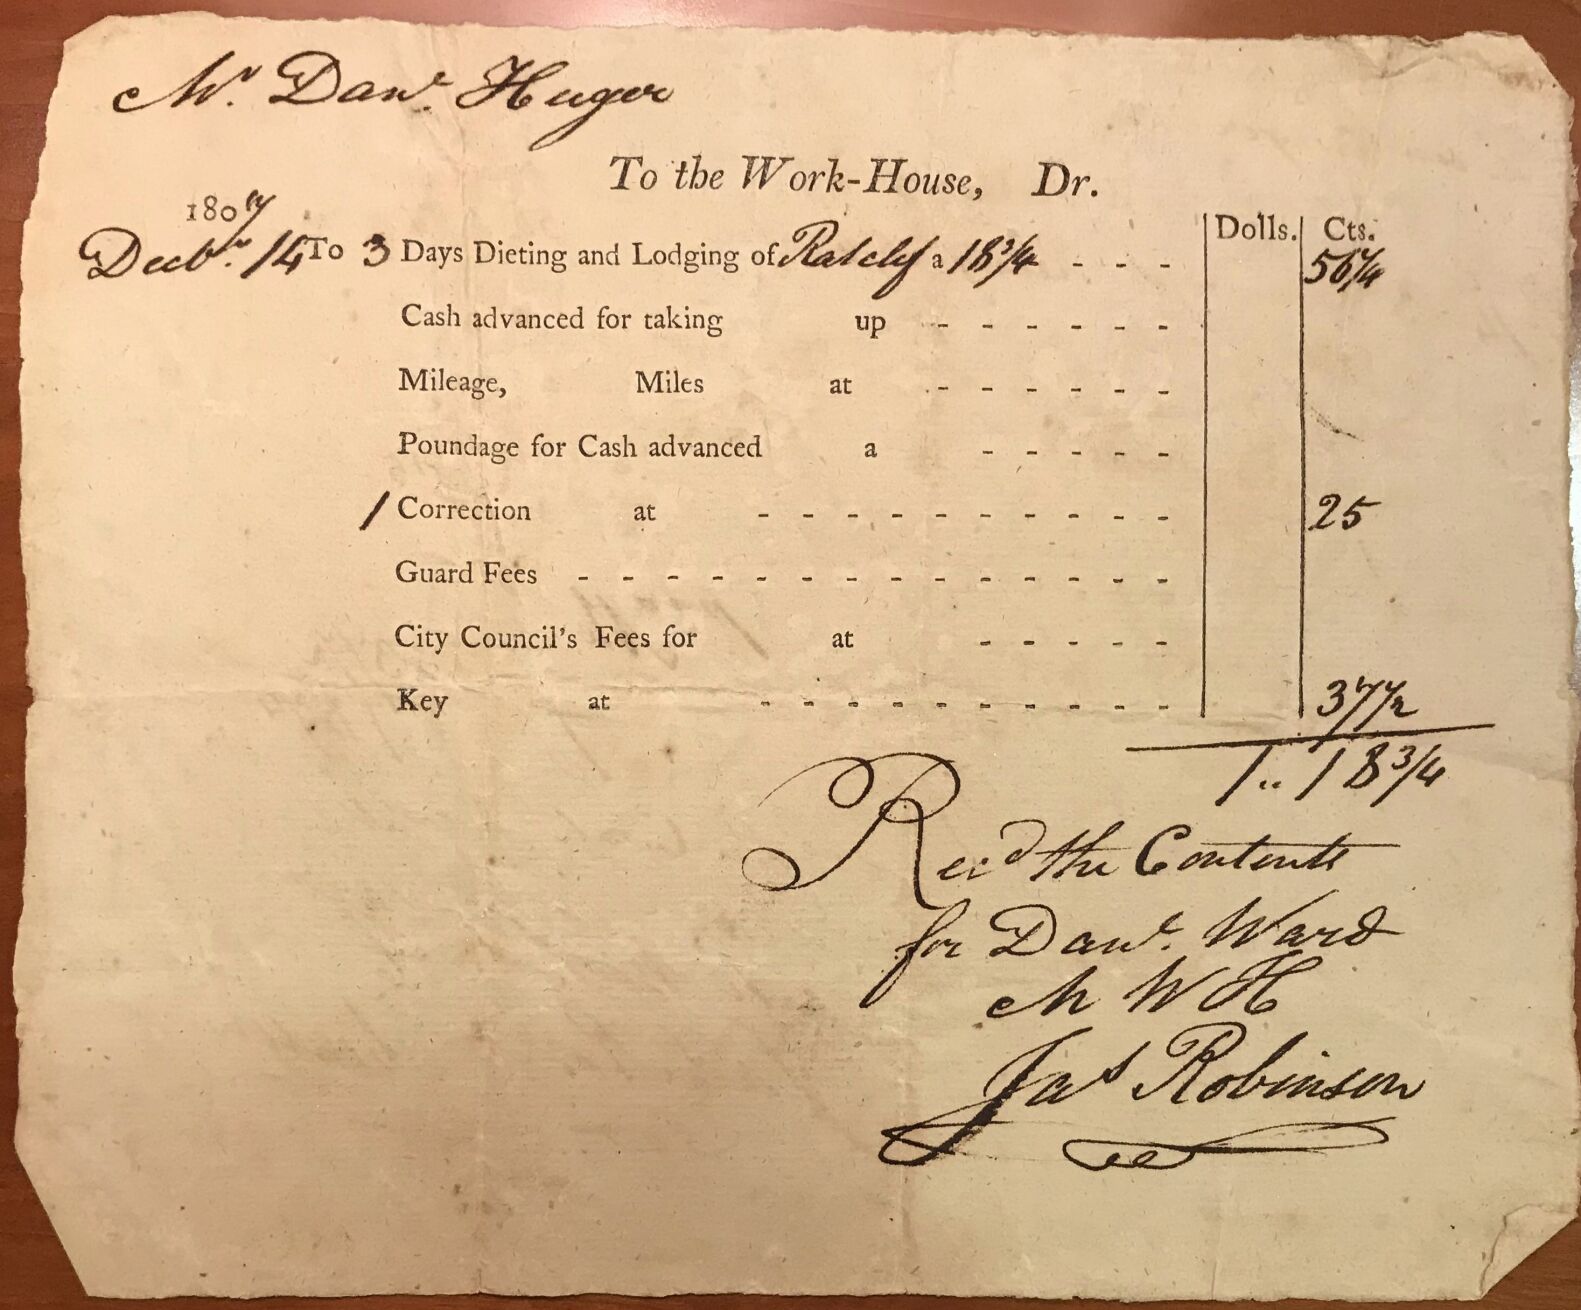 Mr. Danl. Huger
To the Work-House, Dr.
1807
Decbr. 14 To 3 Days Dieting and Lodging of Ratclif a 18 3/4 - - - 56 1/4
Dolls. Cts.
Cash advanced for taking up - - - - - -
Mileage, Miles at - - - - - -
Poundage for Cash advanced a - - - - -
1 Correction at - - - - - - - - - - 25
Guard Fees - - - - - - - - - - - - - -
City Council's Fees for at - - - - -
Key at - - - - - - - - - - 37 1/2
1..18 3/4
Recd the Contents
for Danl. Ward
M W H
Jas Robinson